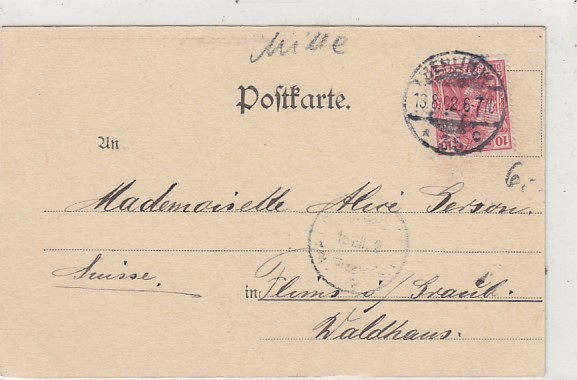 Mitte
Postkarte.
BERLIN, W.
13.8.02.6-7N.
* 35 c
10
An
6.-
Mademoiselle Alice Gerson.
Suisse.
in Flims i/ Graub.
Waldhaus.